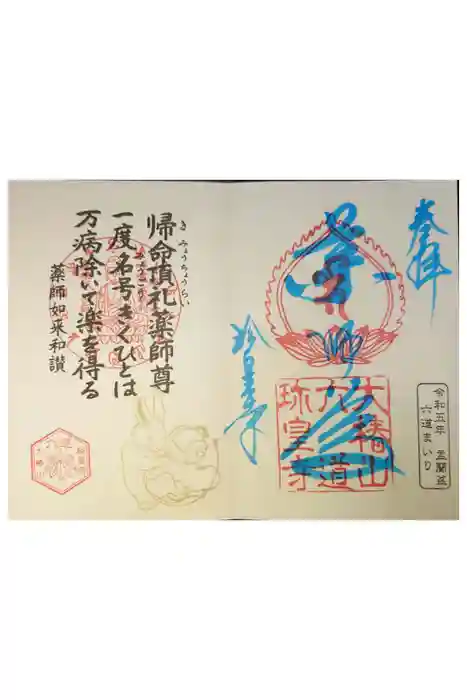 奉拝
令和五年 盂蘭盆
六道まいり
薬師
大椿山
六道
珍皇寺
珍皇寺
帰命頂礼薬師尊
きみょうちょうらい
一度名号きくひとは
みょうごう
万病除いて楽を得る
薬師如来和讃